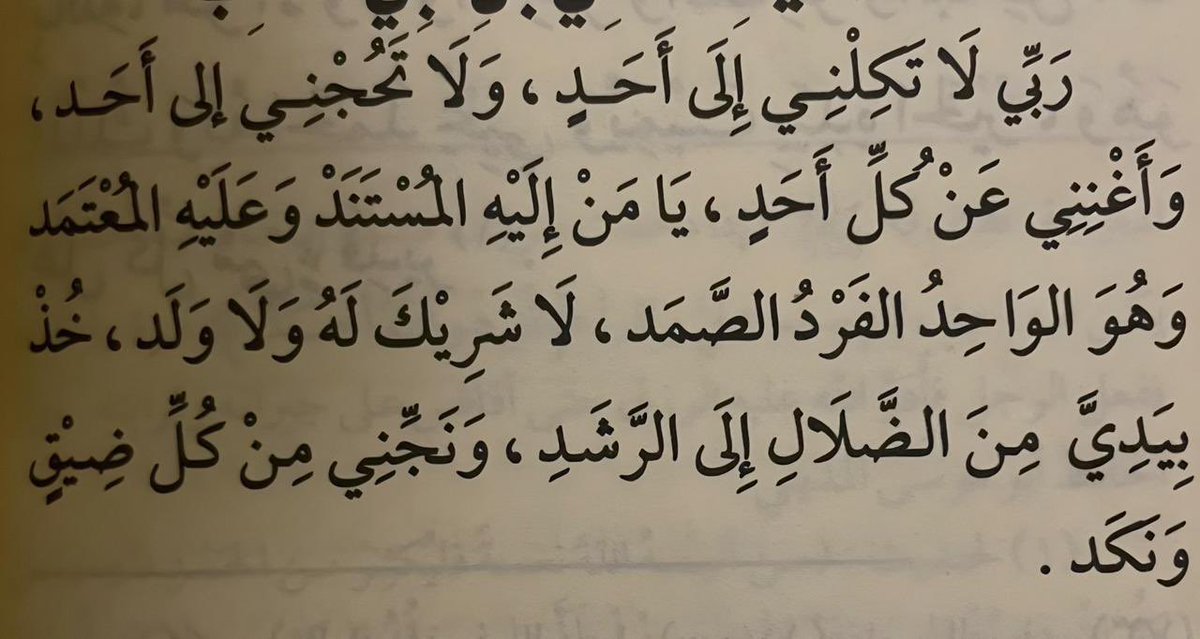 رَبِّي لَا تَكِلْنِـي إِلَى أَحَـدٍ ، وَلَا تَحُجْنِـي إلى أَحَـد ،
وَأَغْنِنِي عَنْ كُلِّ أَحَدٍ ، يَا مَنْ إِلَيْهِ المُسْتَنَدْ وَعَلَيْهِ المُعْتَمَد
وَهُوَ الوَاحِدُ الفَرْدُ الصَّمَد ، لَا شَرِيْكَ لَهُ وَلَا وَلَد ، خُذْ
بِيَدِيَّ مِنَ الضَّلَالِ إِلَى الرَّشَدِ ، وَنَجِّنِي مِنْ كُلِّ ضِيْقٍ
وَنَكَد .